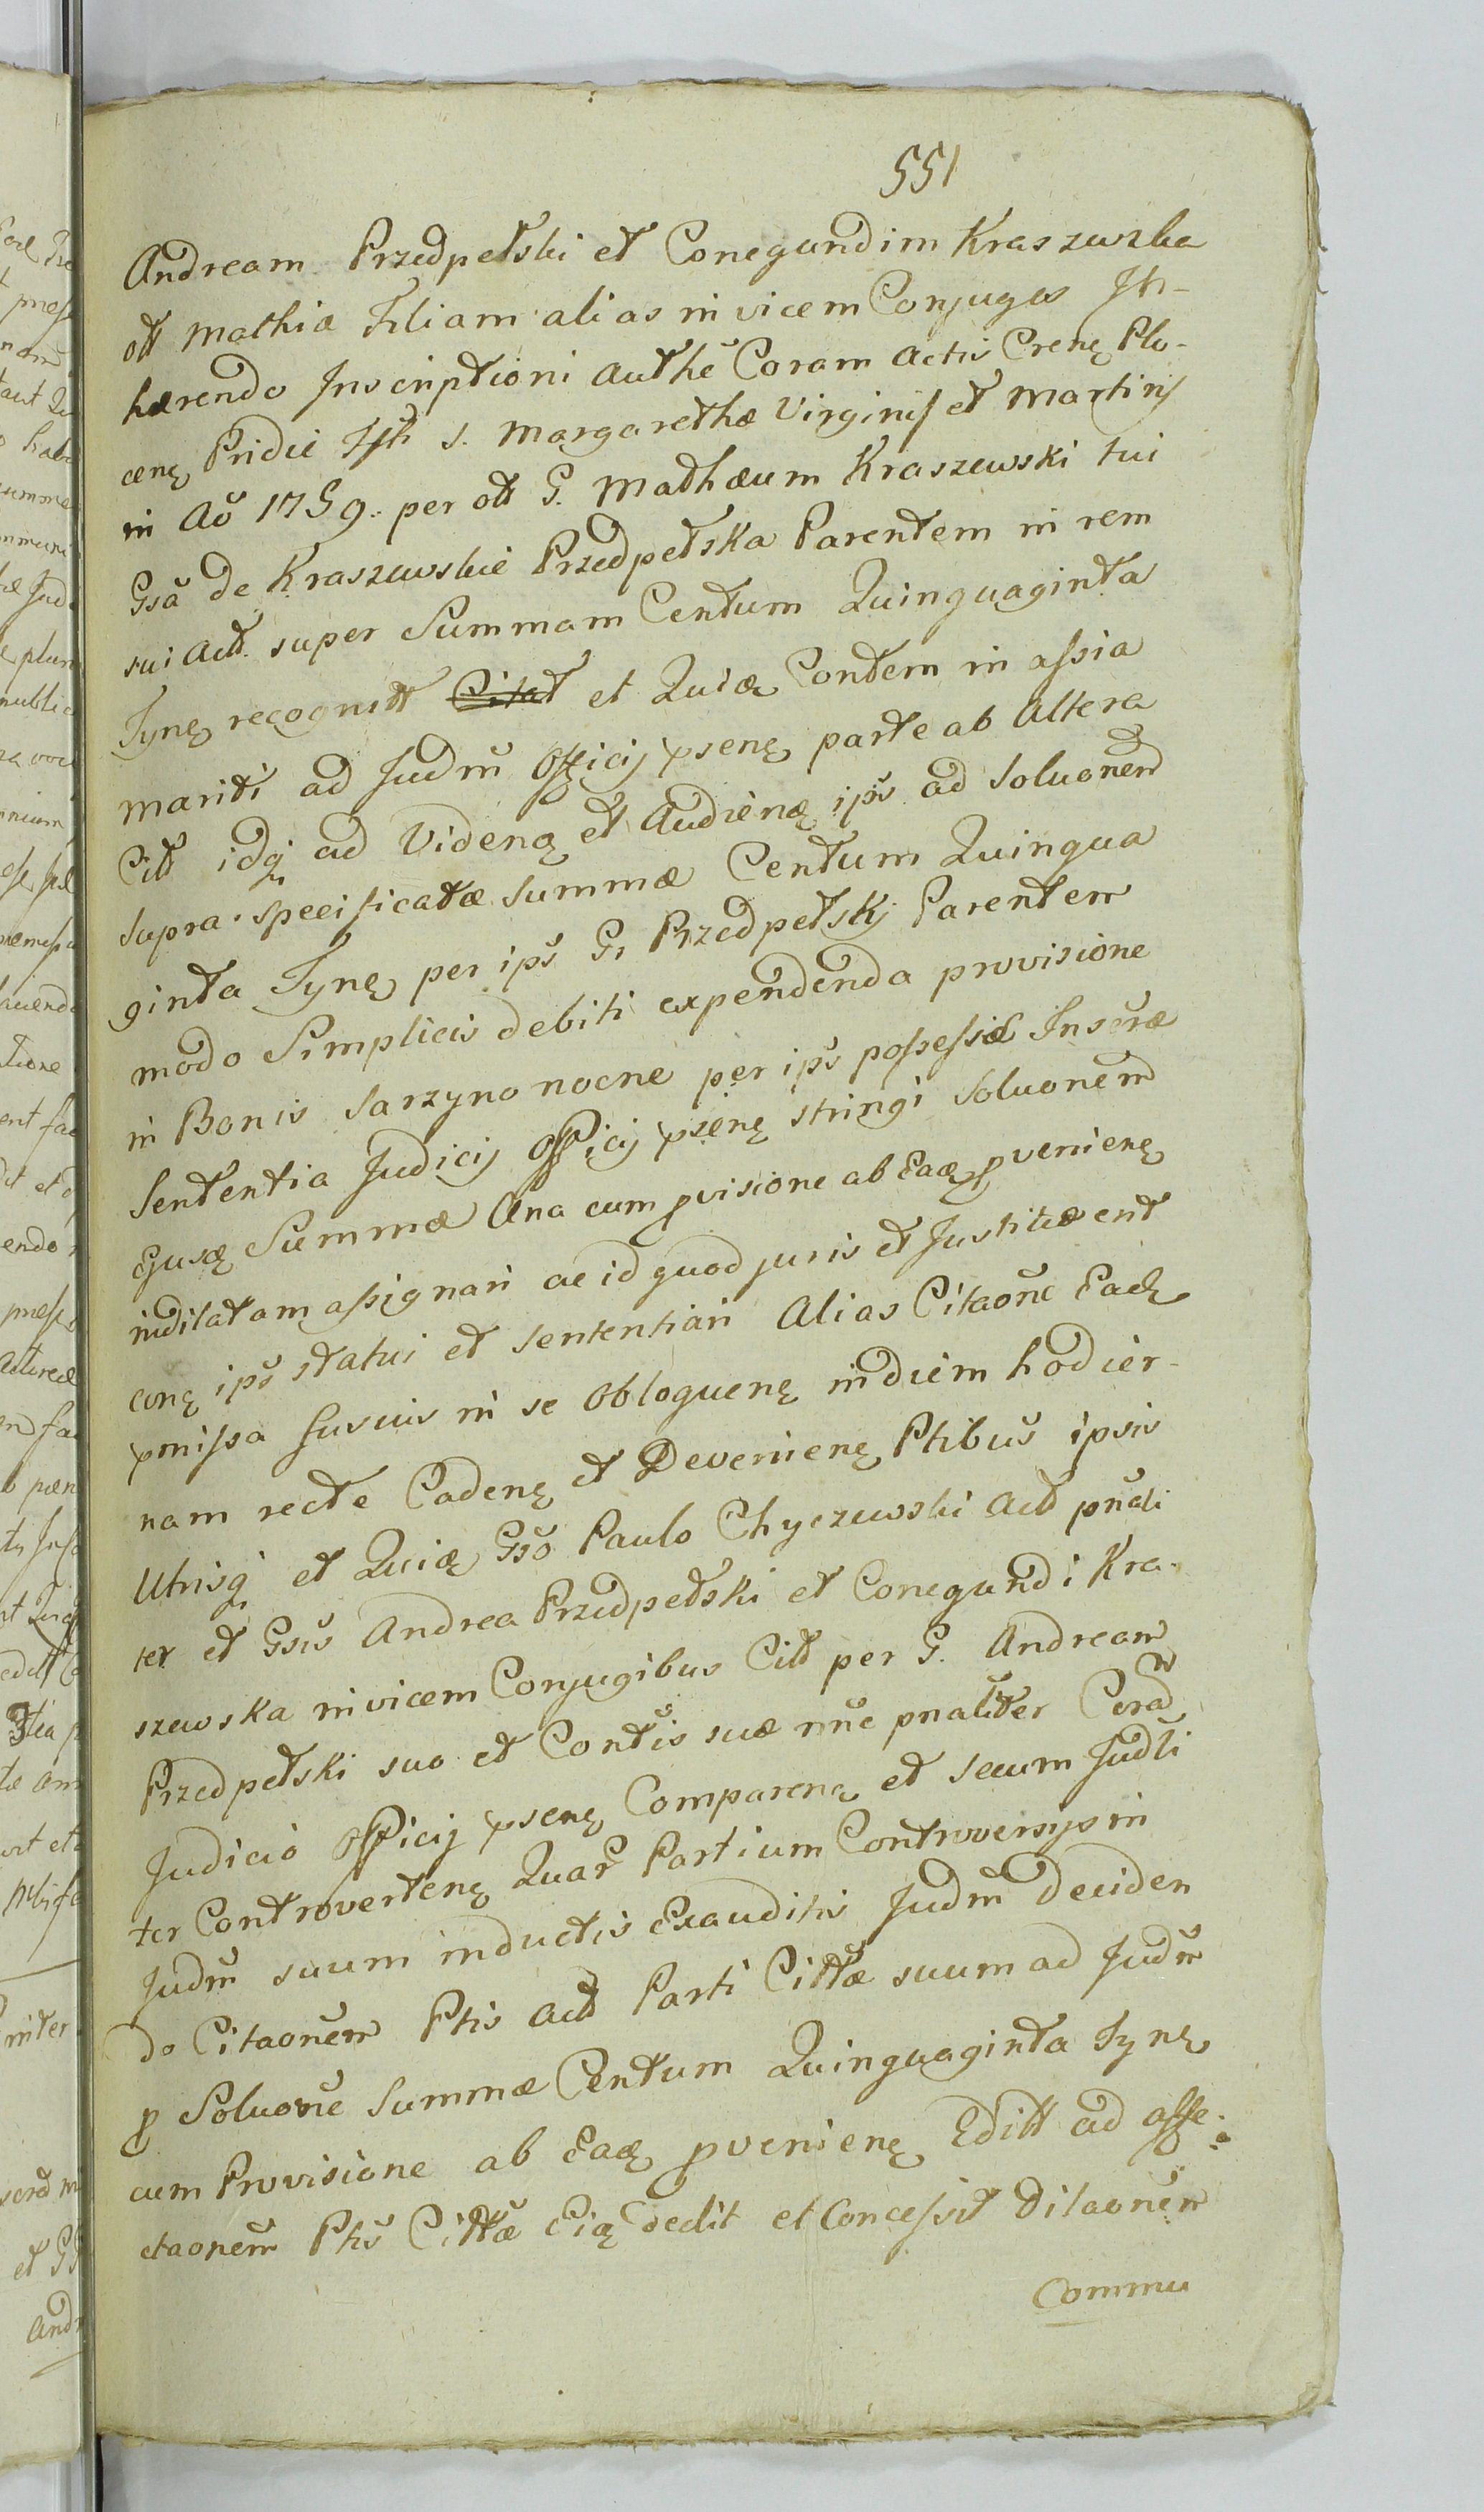 551
Andream Przedpełski et Conegundim Kraszewska
oƚƚ Mathiæ Filiam alias invicem Conjuges In-
hærendo Inscriptioni Authē Coram Actis Crenę Plo-
cenę Pridie Fsti S. Margarethæ Virginis et Martiris
in Aõ 1759. per oƚƚ G. Mathæum Kraszewski tui
Gsã de Kraszewskie Przedpełska Parentem in rem
sui Actt. super Summam Centum Quinquaginta
Tynę recognitt Citat et Quią Contem in assia
Mariti ad Judm̃ Officij pñsenę parte ab Altera
Citt idqj ad Videnę et Audienę ips̃ ad Soluonem̃
Supra specificatæ Summæ Centum Quinqua
ginta Tynę per ips̃ Gr Przedpełskj Parentem
modo Simplicis debiti expendenda provisione
in Bonis Sarzyno nocne per ips̃ possessiõ Inseræ
Sententia Judicij Officij pñsenę stringi Soluonem̃
Ejusę Summæ Una cum pvisione ab Eaę pvenienę
inditatam assignari ac id quod juris et Justitiæ erit
conę ips̃ statui et sententiari Alias Citaonẽ Eadę
pmissa fusius in se Obloquenę in diem hodier-
nam recte Cadenę et Devenienę Ptibus̃ ipsis
Utrisqj et Quią Gsõ Paulo Chyczewski Actt pñali
ter et Gsis̃ Andrea Przedpełski et Conegundi Kra-
szewska invicem Conjugibus Citt per G. Andream
Przedpełski suo et Contis̃ suæ nñe pnalit̃er Corã
Judicio Officij pñsenę Comparenę et secum Judli
ter Controvertenę Quar̃ Partium Controversys in
Judm̃ suum inductis Exauditis Judm̃ Deciden
do Citaonẽm Ptis Actt Parti Cittæ suum ad Judm̃
p Soluonẽ Summæ Centum Quinquaginta Tynę
cum Provisione ab Eaę pvenienę Editt ad affe-
ctaonẽm Ptis̃ Cittæ Eię dedit et Concessit Dilaonẽm
Commu